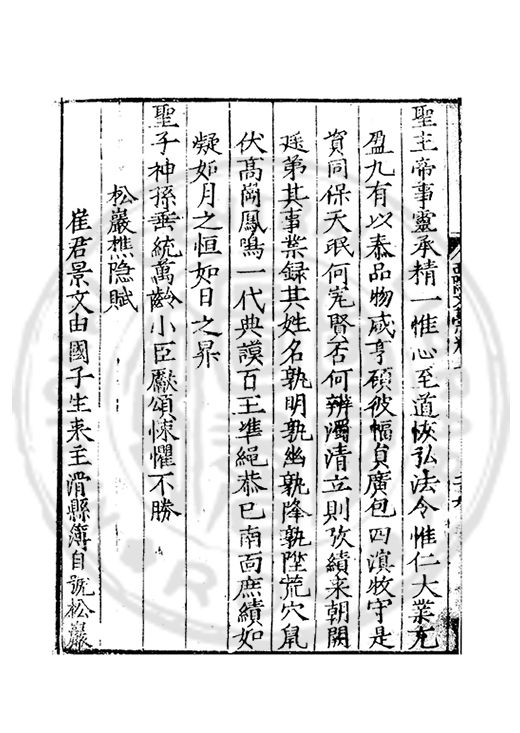 聖主帝事靈承精一惟心至道恢弘法令惟仁大業充
盈九有以泰品物咸亨碩彼幅員廣包四溟牧守是
資同保天珉何完賢否何辨濁清立則攷績来朝闕
廷第其事業録其姓名孰明孰幽孰降孰陞荒穴鼠
伏高崗鳳鳴一代典謨百王準繩恭巳南面庶績如
凝如月之恒如日之昇
聖子神孫垂統萬齡小臣獻頌悚懼不勝
松巖樵隐賦
崔君景文由國子生来主滑縣簿自號松巖